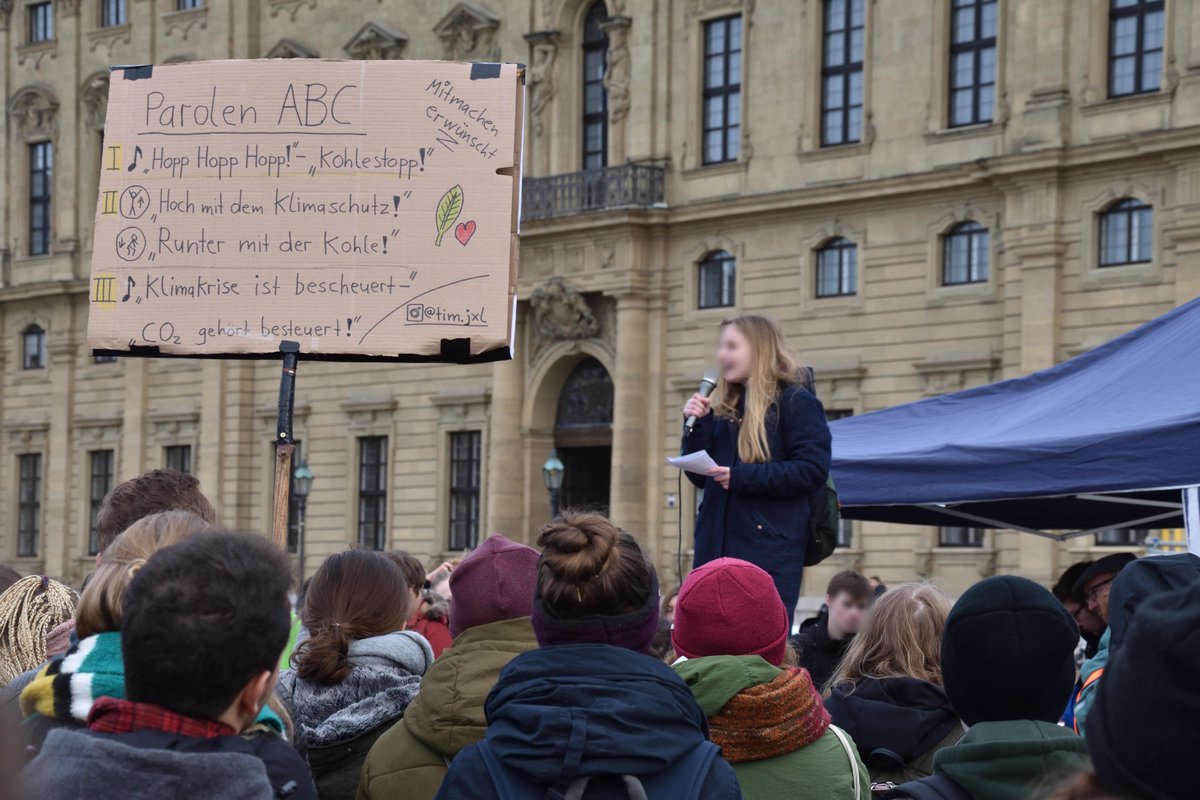 Parolen ABC
Mitmachen
erwünscht
I ♪ „Hopp Hopp Hopp!"-„Kohlestopp!"
II „Hoch mit dem Klimaschutz!"
„Runter mit der Kohle!"
III ♪ „Klimakrise ist bescheuert-"
„CO₂ gehört besteuert!"
@tim.jxl